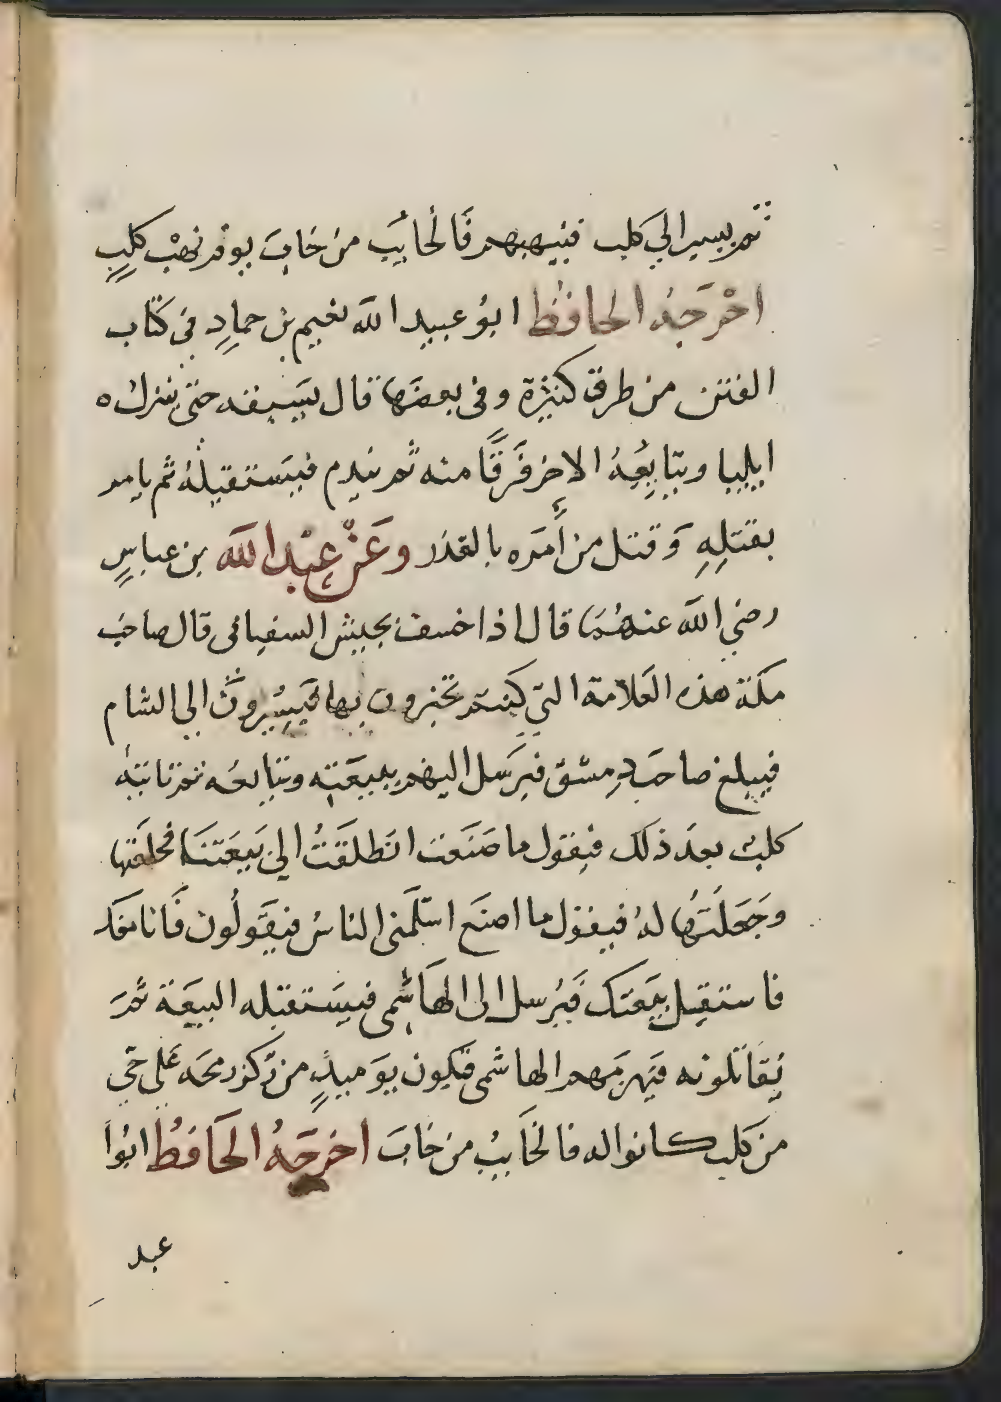 ثم يسير الى كلب فينهبهم فالخايب من خاب يوم نهب كلب
اخرجه الحافظ ابو عبد الله نعيم بن حماد في كتاب
الفتن من طرق كثيرة وفي بعضها قال يسبقه حتى ينزل
ايليا ويتابعه الاخر فرقا منه ثم يندم فيستقيله ثم يامر
بقتله وقتل من امره بالغدر وعن عبد الله بن عباس
رضي الله عنهما قال اذا خسف بجيش السفياني قال صاحب
مكة هذه العلامة التي كنتم تخبرون بها فيسيرون الى الشام
فيبلغ صاحب دمشق فيرسل اليهم ببيعته ويتابعه ثم تاتيه
كلب بعد ذلك فيقول ما صنعت انطلقت الى بيعتنا فخلعتها
وجعلتها له فيقول ما اصنع اسلمني الناس فيقولون فانا معك
فاستقيل بيعتك فيرسل الى الهاشمي فيستقيله البيعة ثم
يقاتلونه فيهزمهم الهاشمي فيكون يوميذ من ركز رمحه على حي
من كلب كانوا له فالخايب من خاب اخرجه الحافظ ابوا
عبد